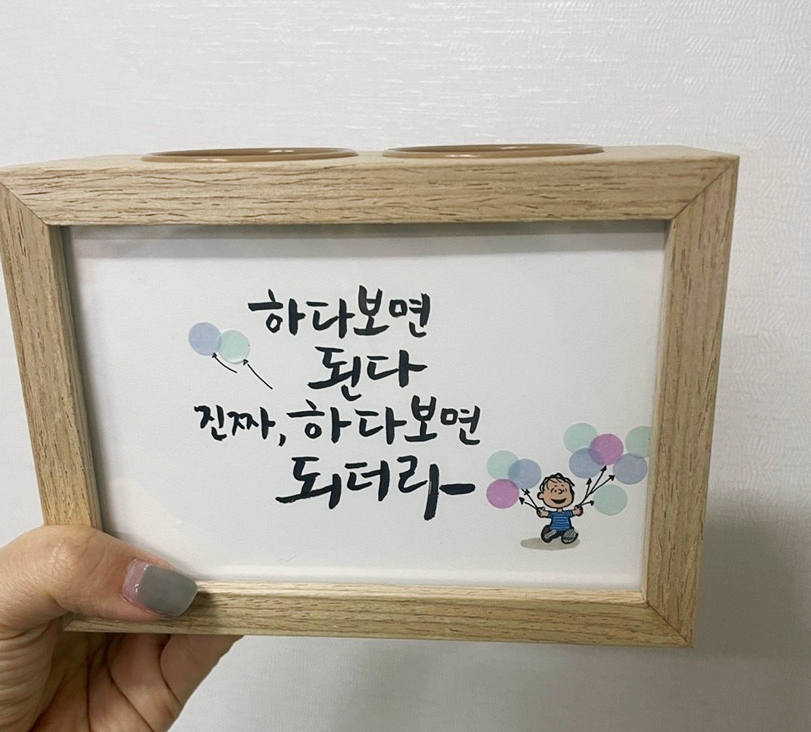 하다보면
된다
진짜, 하다보면
되더라